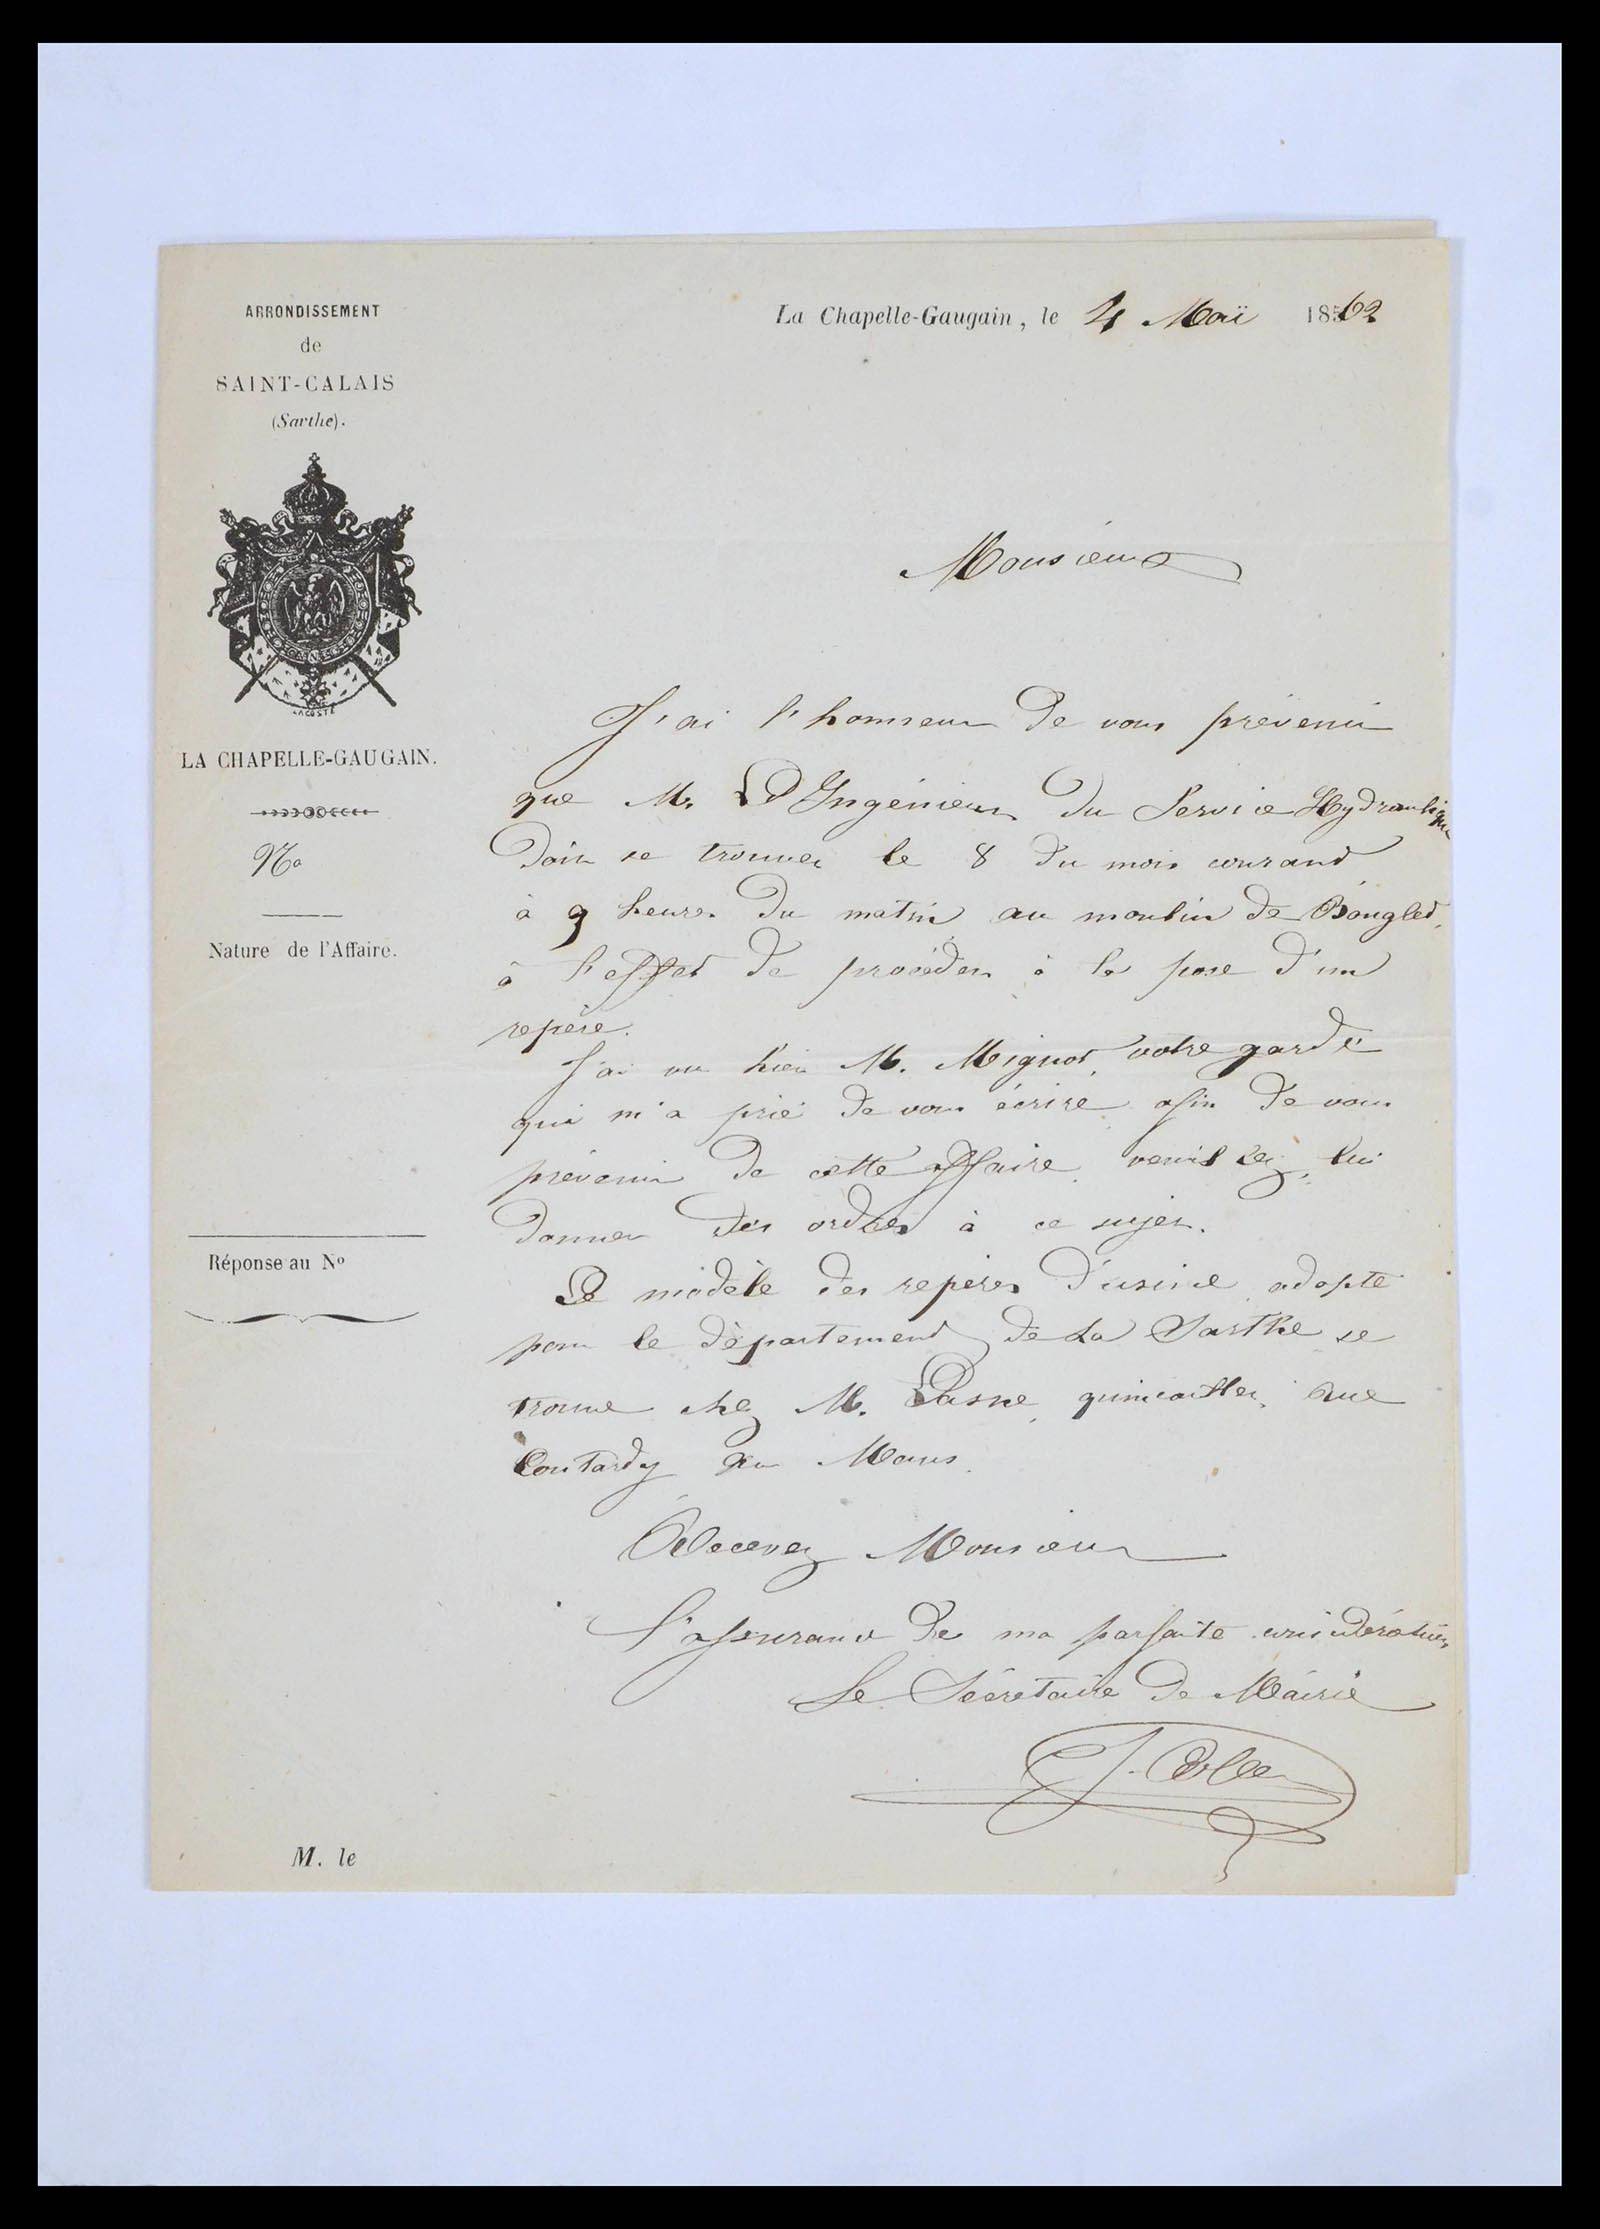 ARRONDISSEMENT
de
SAINT-CALAIS
(Sarthe).
LACOSTE
LA CHAPELLE-GAUGAIN.
No
Nature de l'Affaire.
Réponse au No
M. le
La Chapelle-Gaugain, le 4 Maï 1862
Monsieur
J'ai l'honneur de vous prévenir
que Mr L'Ingénieur du Service Hydraulique
doit se trouver le 8 du mois courant
à 9 heures du matin au moulin de
à l'effet de procéder à la pose d'un
repère.
J'ai vu hier M. Mignot, votre garde
qui m'a prié de vous écrire afin de vous
prévenir de cette affaire, veuillez, lui
donner des ordres à ce sujet.
Le modèle des repères d'usine adopté
pour le département de La Sarthe se
trouve chez M. quincailler, rue
au Mans.
Recevez Monsieur
l'assurance de ma parfaite considération
Le Sécrétaire de Mairie